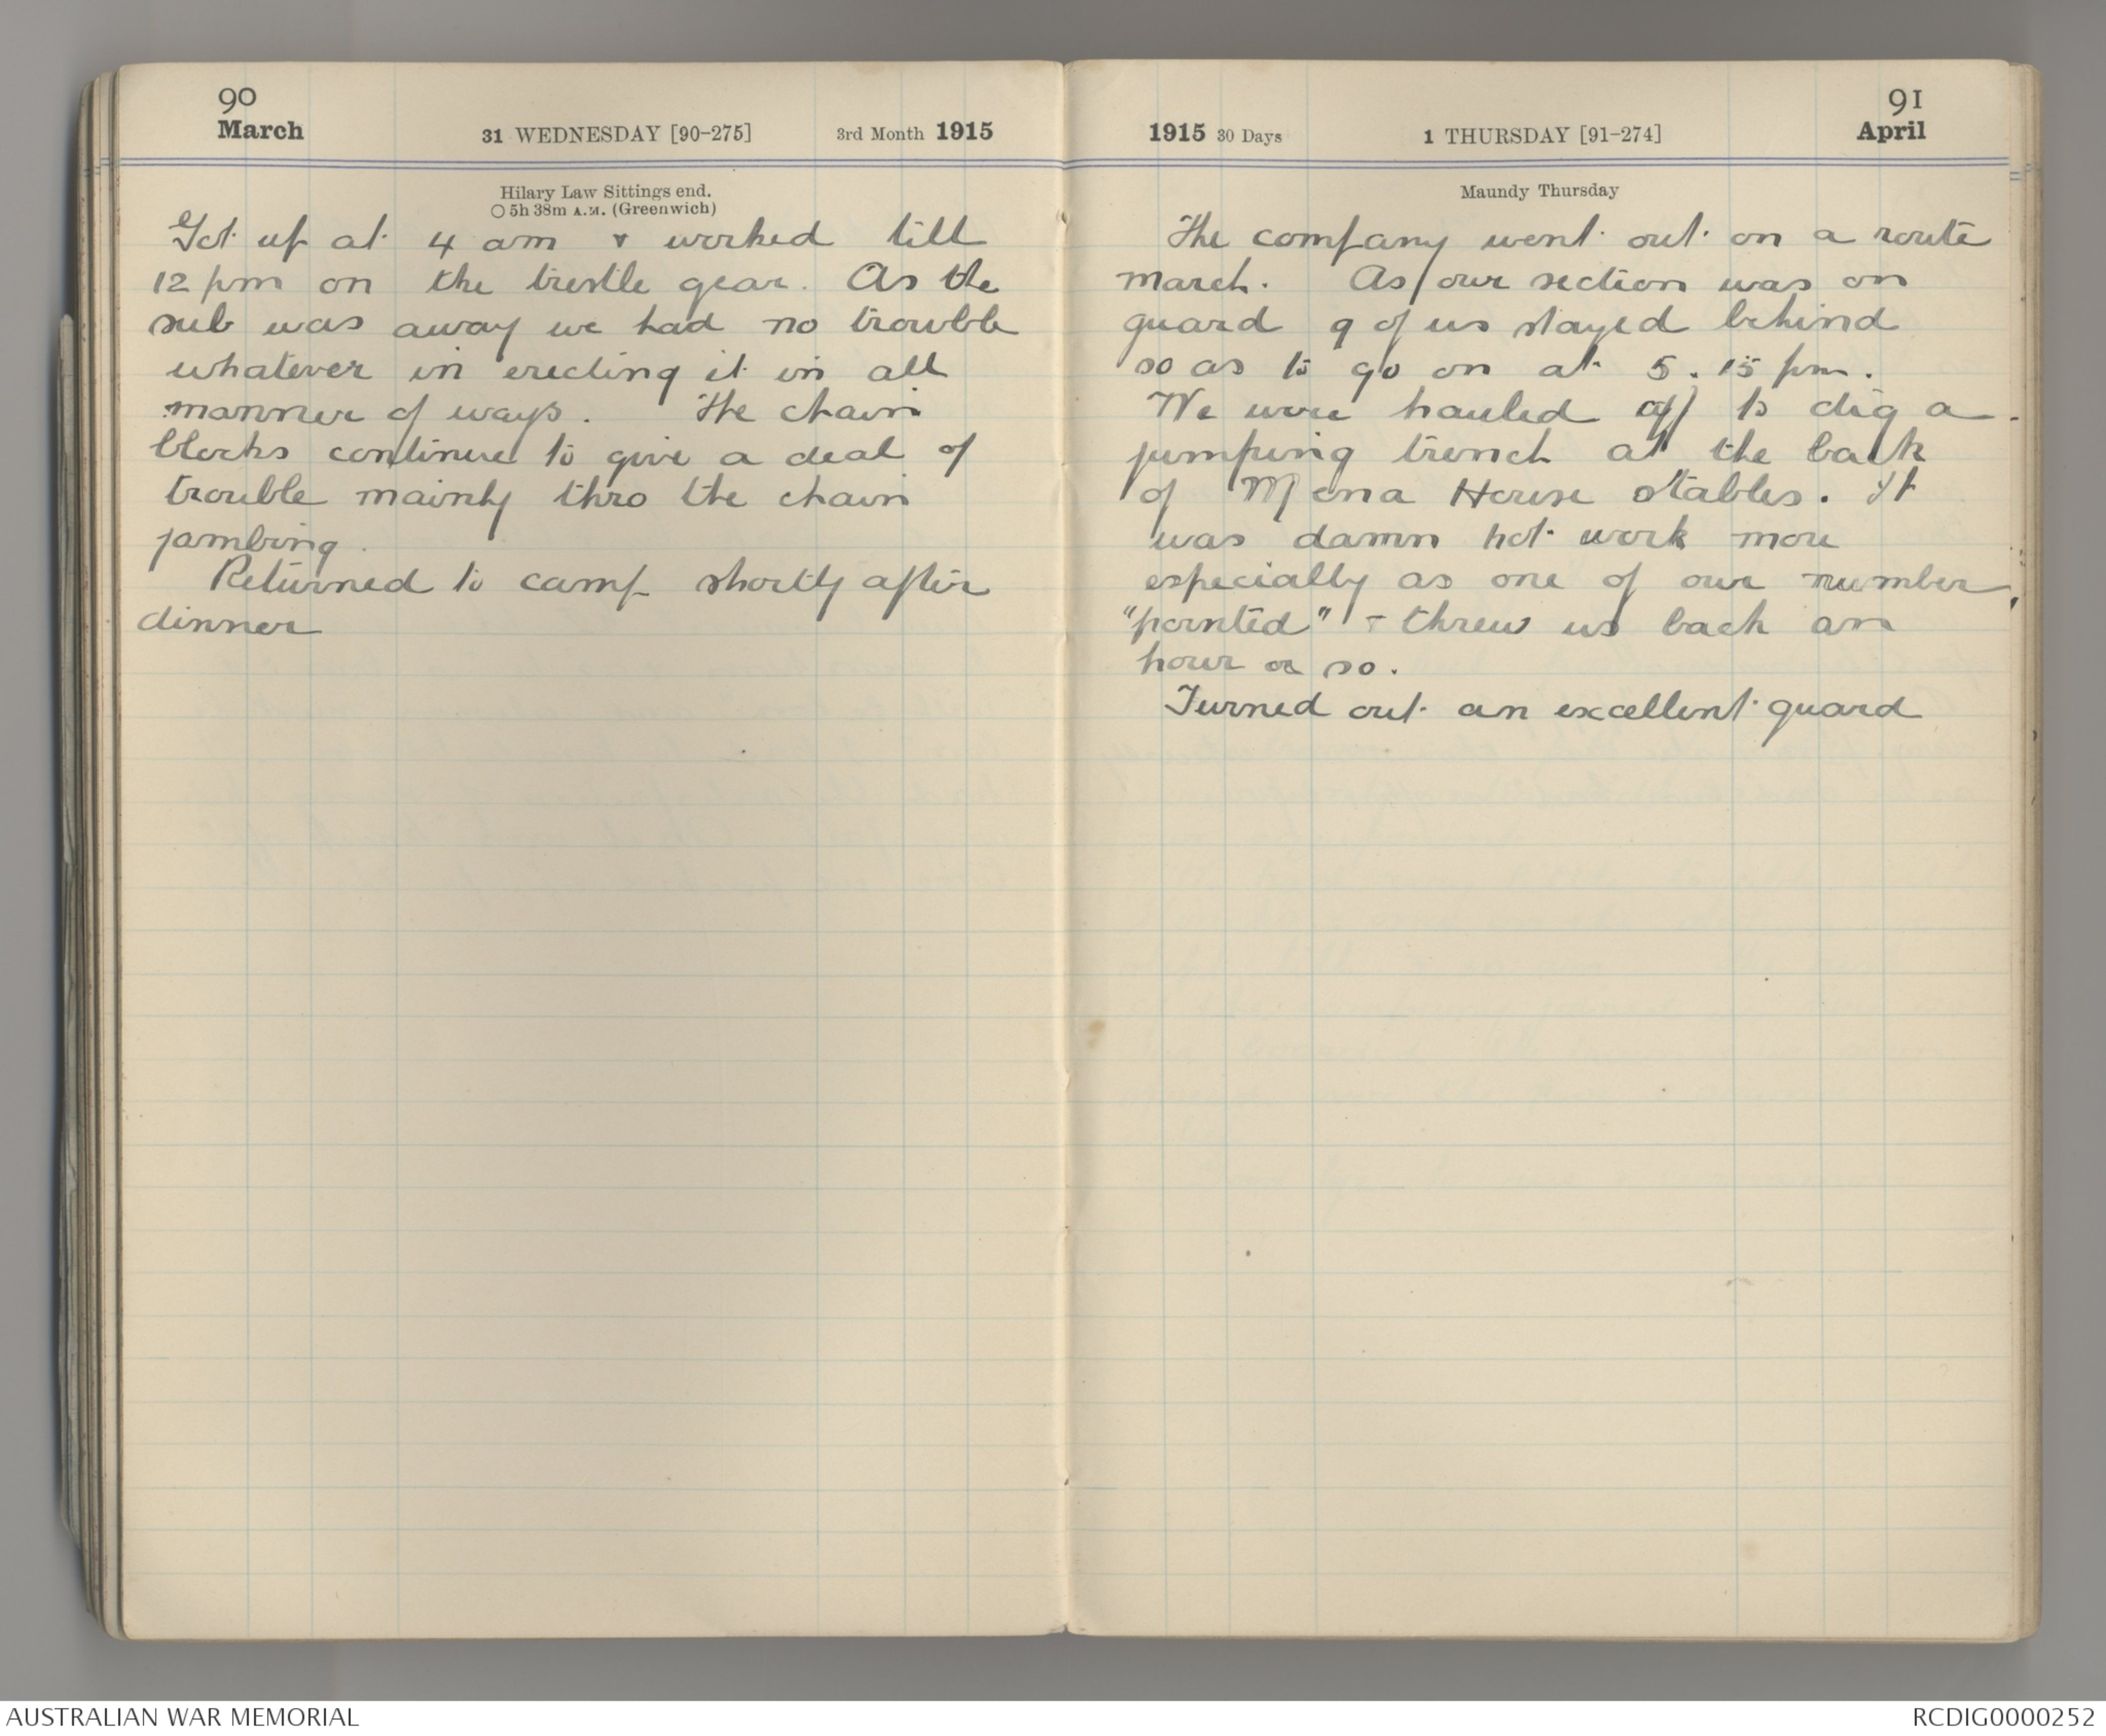 90
March
31 WEDNESDAY [90-275]
3rd Month 1915
Hilary Law Sittings end.
○ 5h 38m A.M. (Greenwich)
Got up at 4 am & worked till
12 pm on the trestle gear. As the
sub was away we had no trouble
whatever in erecting it in all
manner of ways. The chain
blocks continue to give a deal of
trouble mainly thro the chain
jambing.
Returned to camp shortly after
dinner
91
1915 30 Days
1 THURSDAY [91-274]
April
Maundy Thursday
The company went out on a route
march. As our section was on
guard 9 of us stayed behind
so as to go on at 5.15 pm.
We were hauled off to dig a
jumping trench at the back
of Mena House stables. It
was damn hot work more
especially as one of our number
"pointed" & threw us back an
hour or so.
Turned out an excellent guard
AUSTRALIAN WAR MEMORIAL
RCDIG0000252